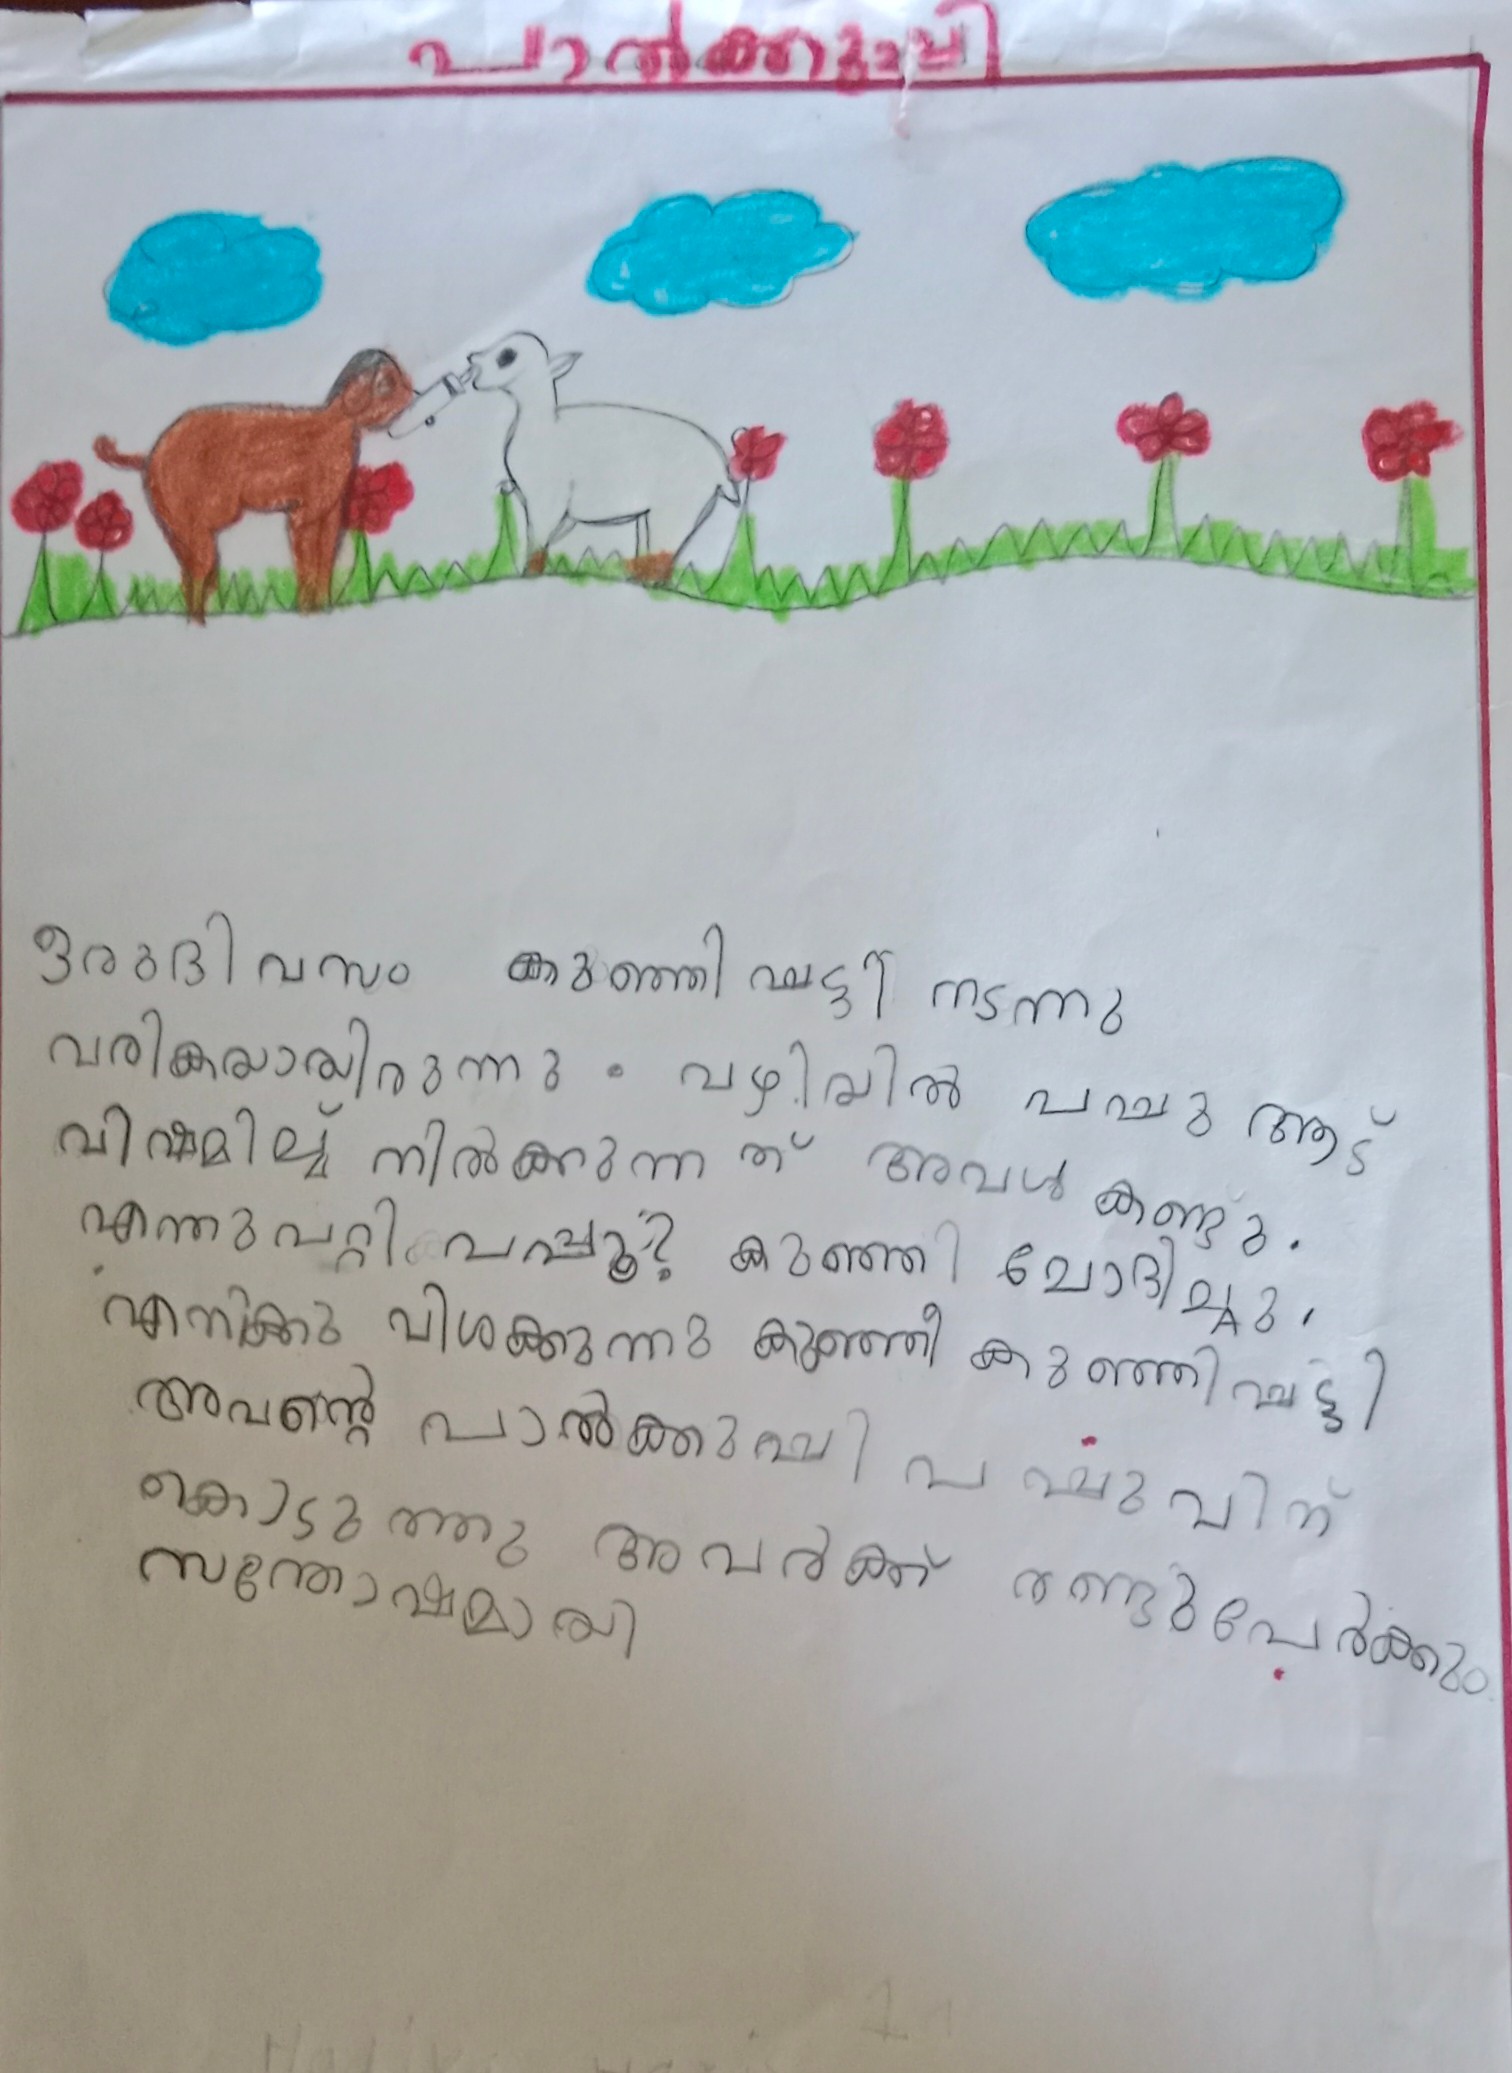 പാൽക്കുപ്പി
ഒരുദിവസം കുഞ്ഞിപ്പട്ടി നടന്നു
വരികയായിരുന്നു. വഴിയിൽ പപ്പു ആട്
വിഷമിച്ച് നിൽക്കുന്നത് അവൾ കണ്ടു.
എന്തുപറ്റി പപ്പൂ? കുഞ്ഞി ചോദിച്ചു.
എനിക്കു വിശക്കുന്നു കുഞ്ഞീ കുഞ്ഞിപ്പട്ടി
അവന്റെ പാൽക്കുപ്പി പപ്പുവിന്
കൊടുത്തു അവർക്ക് രണ്ടുപേർക്കും
സന്തോഷമായി